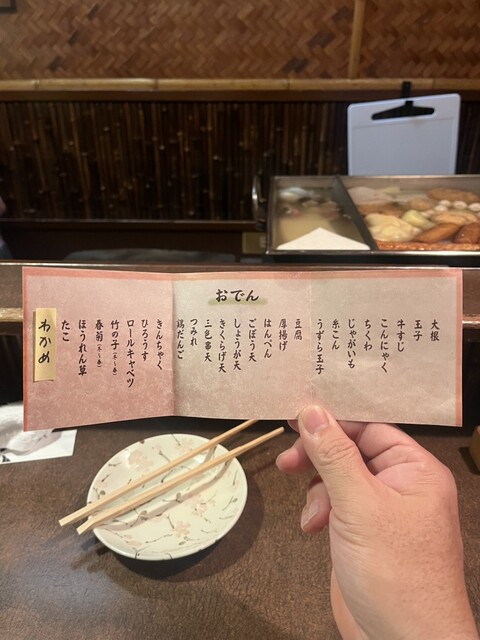 おでん
大根
玉子
牛すじ
こんにゃく
ちくわ
じゃがいも
糸こん
うずら玉子
豆腐
厚揚げ
はんぺん
ごぼう天
しょうが天
きくらげ天
三色串天
つみれ
鶏だんご
きんちゃく
ひろうす
ロールキャベツ
竹の子(冬〜春)
春菊(冬〜春)
ほうれん草
たこ
わかめ